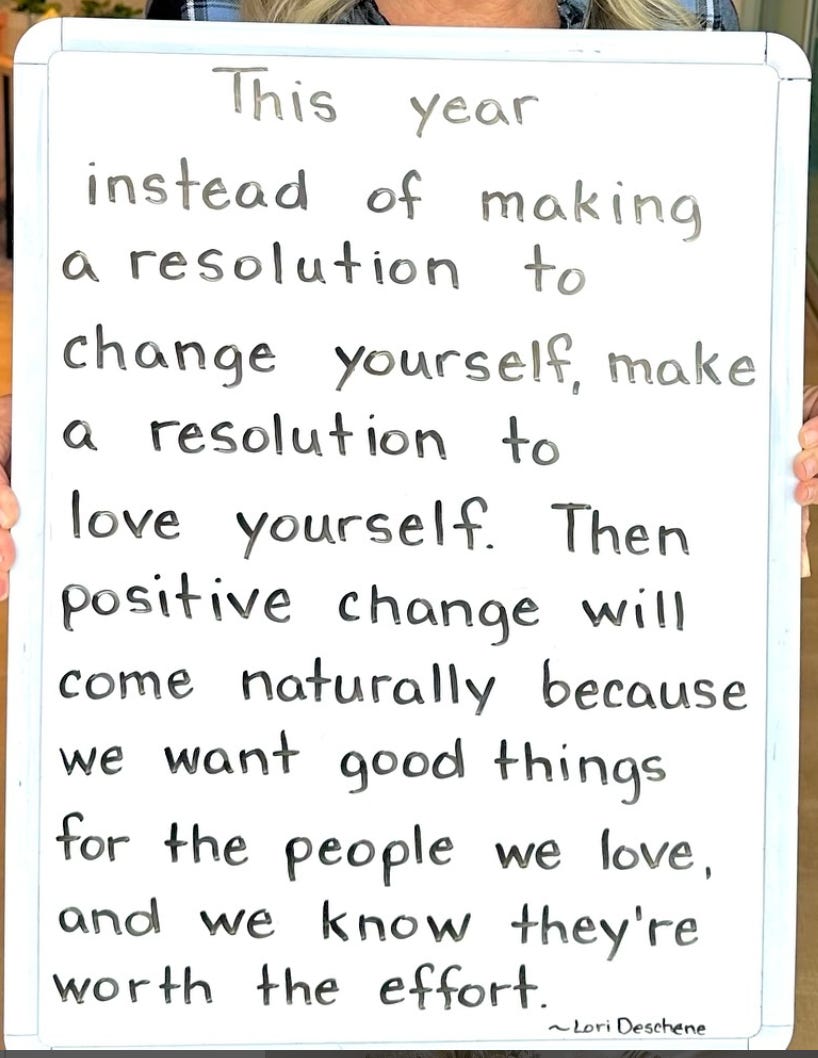 This year
instead of making
a resolution to
change yourself, make
a resolution to
love yourself. Then
positive change will
come naturally because
we want good things
for the people we love,
and we know they're
worth the effort.
~Lori Deschene